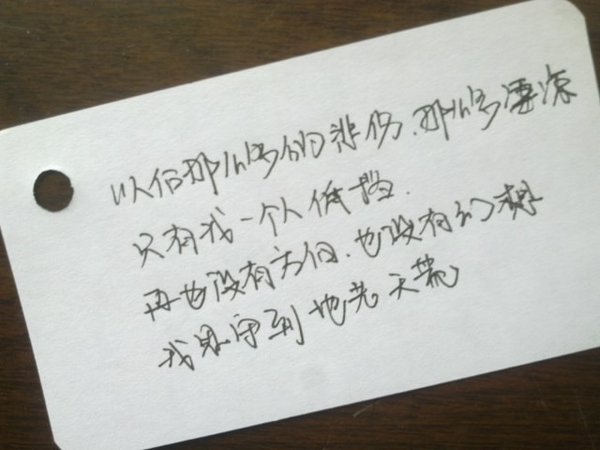 以后那么多的悲伤.那么多凄凉
只有我一个人抵挡.
再也没有方向.也没有幻想
我守到地老天荒